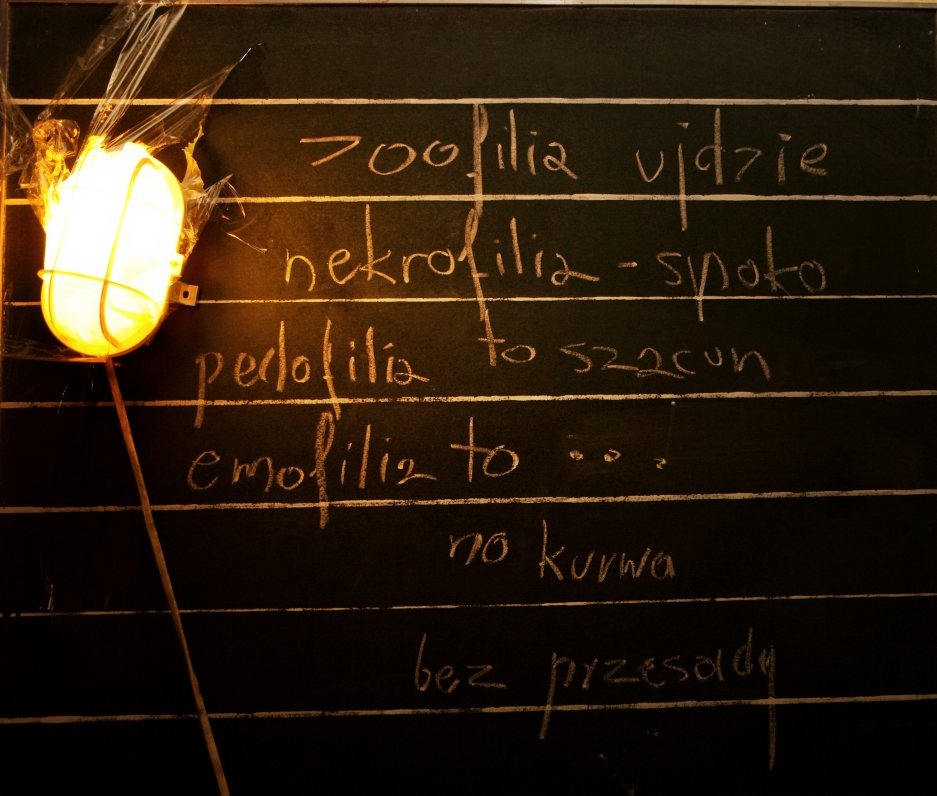 zoofilia ujdzie
nekrofilia - spoko
pedofilia to szacun
emofilia to ...
no kurwa
bez przesady